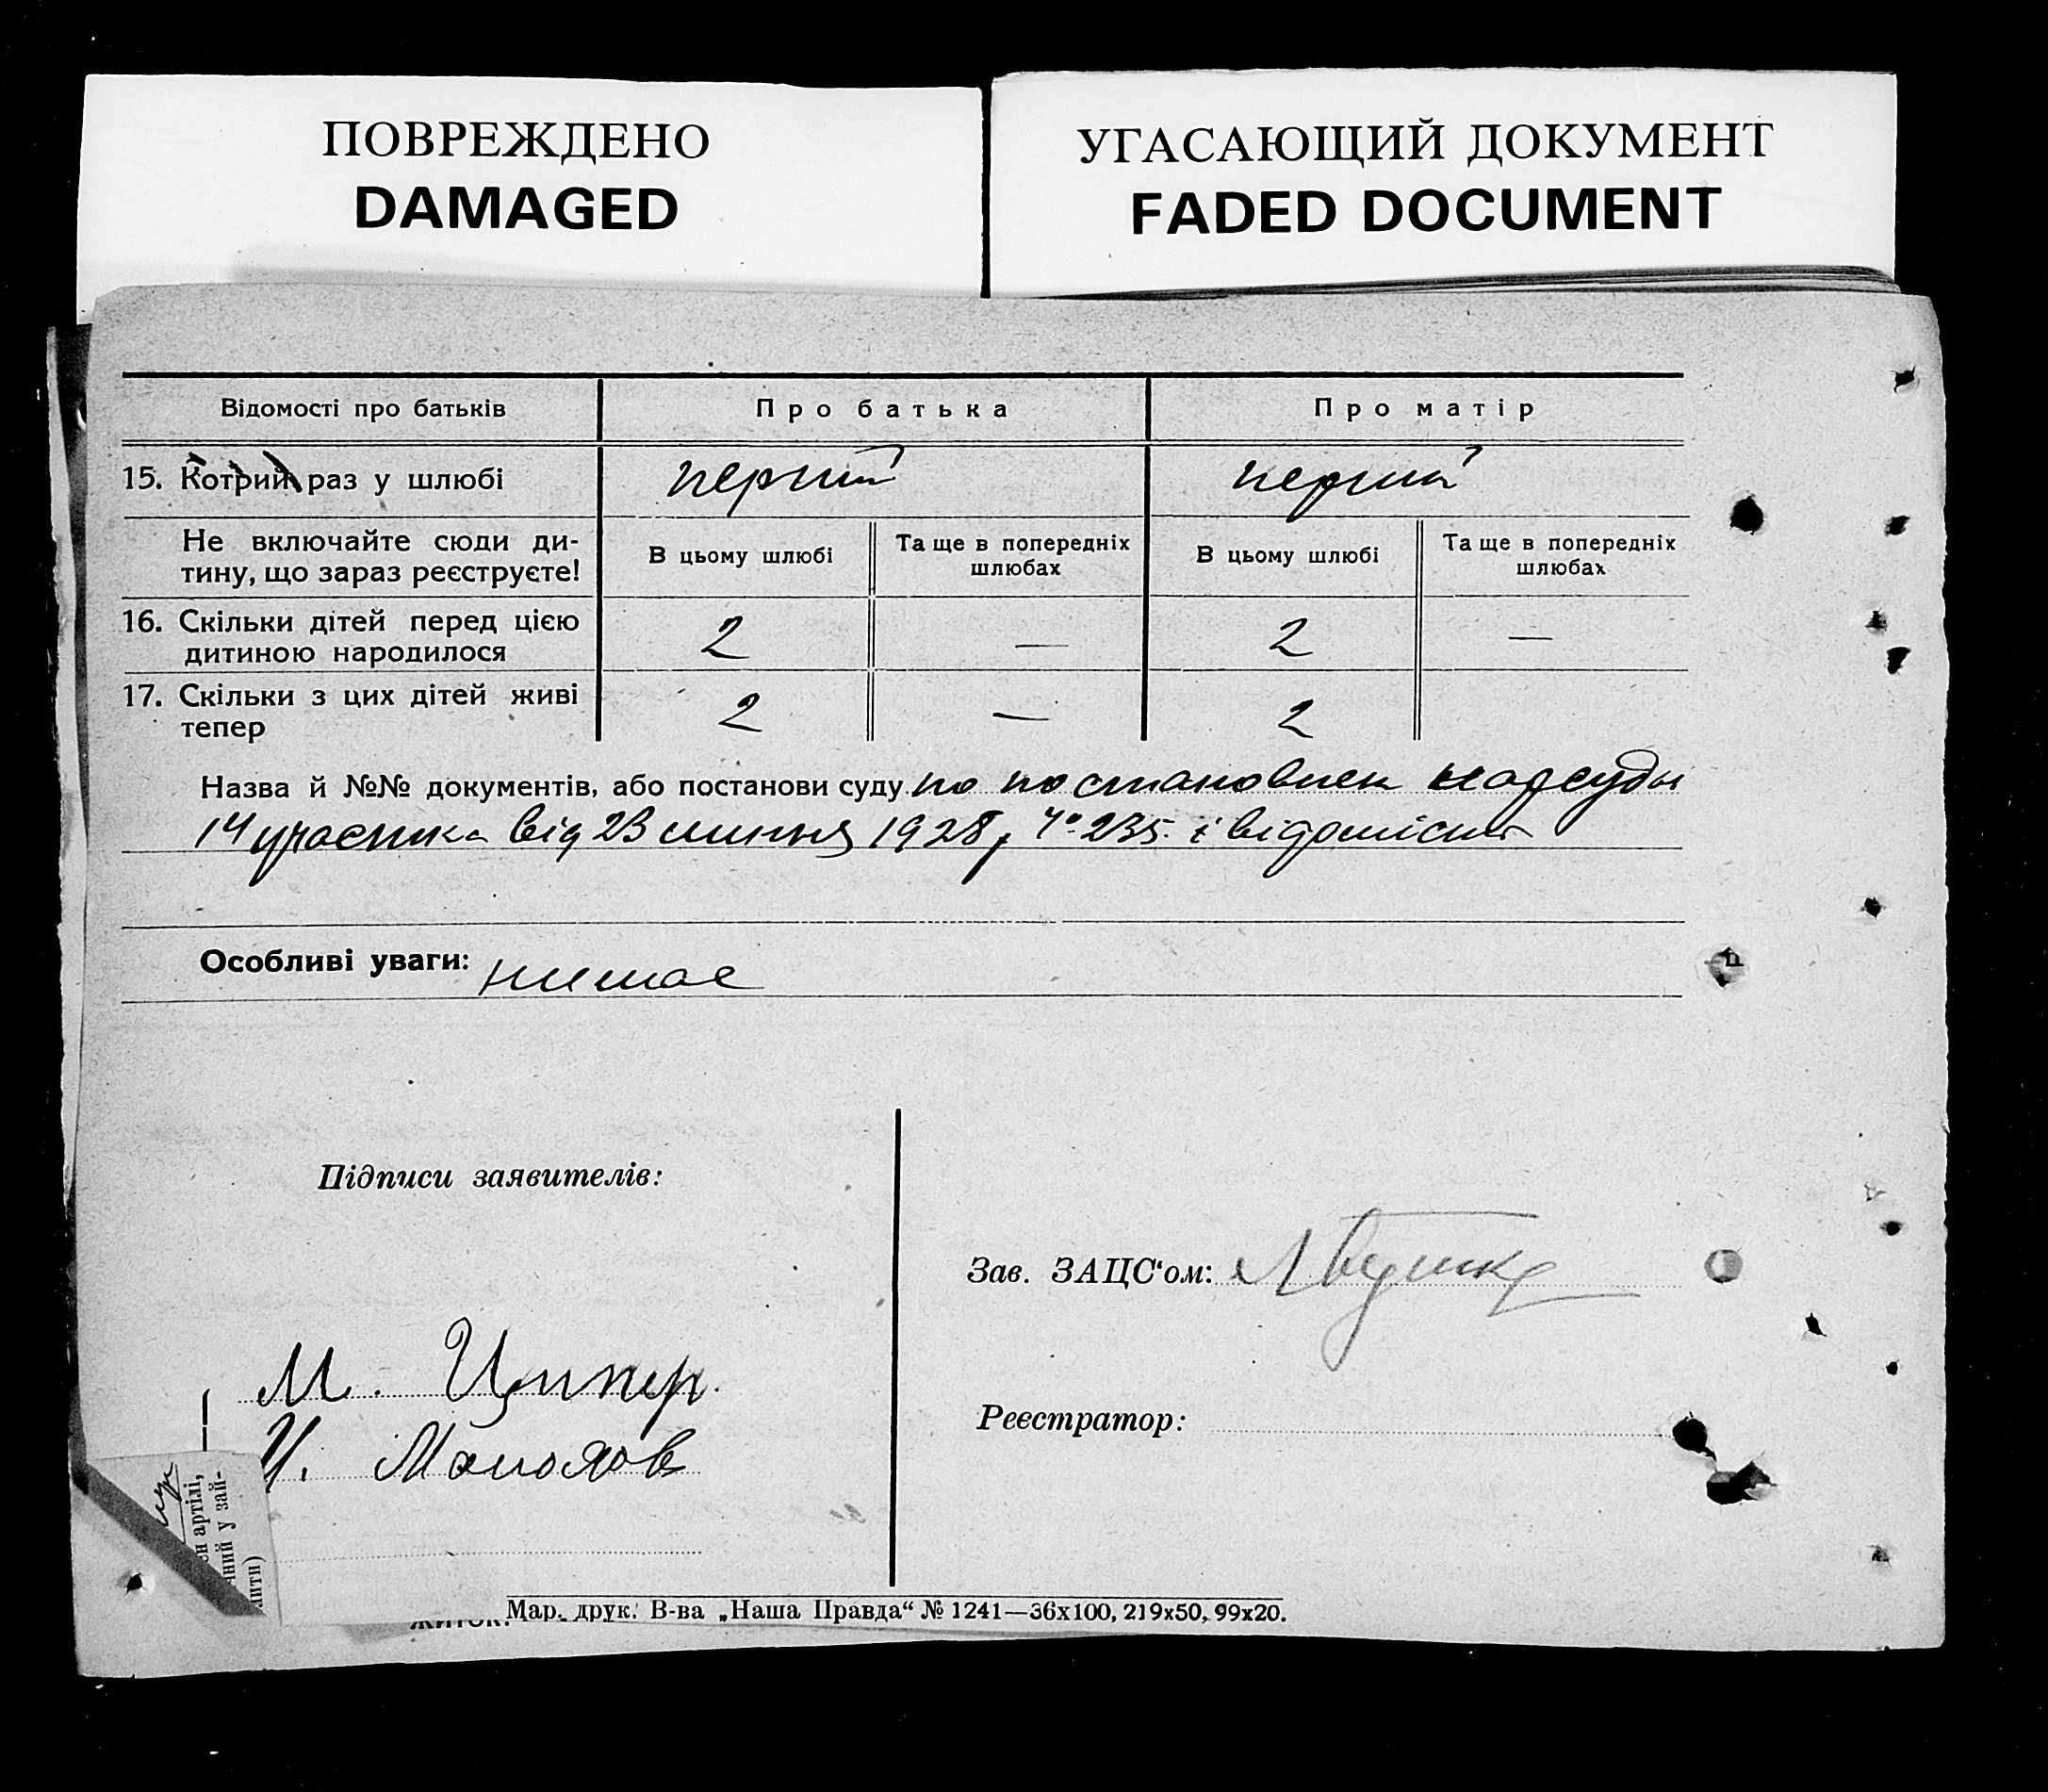 ПОВРЕЖДЕНО
DAMAGED
УГАСАЮЩИЙ ДОКУМЕНТ
FADED DOCUMENT
Відомості про батьків Про батька Про матір
15. Котрий раз у шлюбі перший перший
Не включайте сюди ди-
тину, що зараз реєструєте!
В цьому шлюбі
Та ще в попередніх
шлюбах
В цьому шлюбі
Та ще в попередніх
шлюбах
16. Скільки дітей перед цією
дитиною народилося
2 — 2 —
17. Скільки з цих дітей живі
тепер
2 — 2
Назва й №№ документів, або постанови суду по постановлен нарсуда
14 участка від 23 липня 1928 р. 235 і відомість
Особливі уваги: немає
Підписи заявителів:
М. Ципер
И.
Зав. ЗАЦС'ом:
Реєстратор:
ен артілі,
ний у зай-
ити)
житок.
Мар. друк. В-ва „Наша Правда“ № 1241—36x100, 219x50, 99x20.